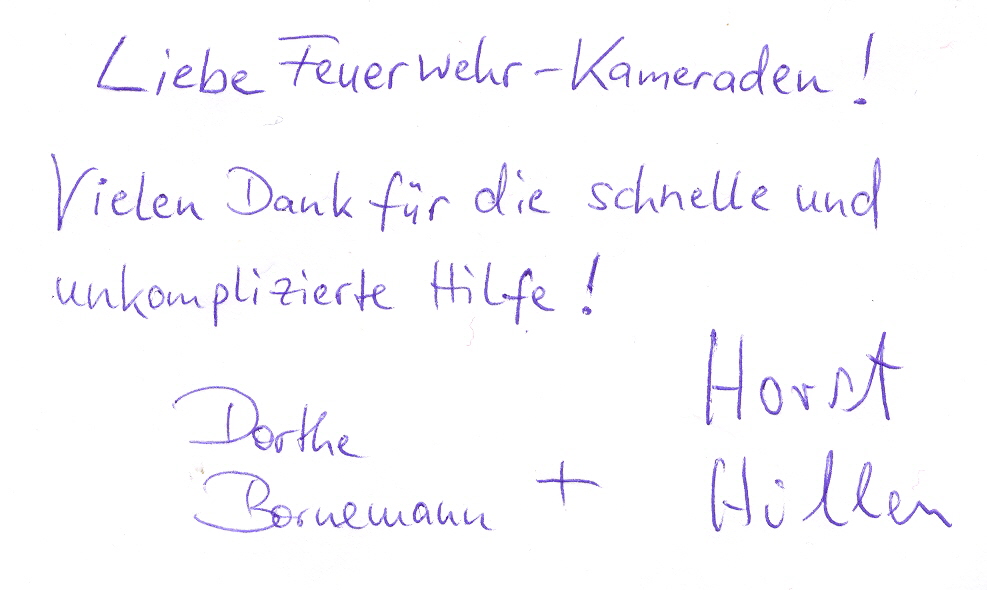 Liebe Feuerwehr-Kameraden!
Vielen Dank für die schnelle und
unkomplizierte Hilfe!
Dorthe
Bornemann + Horst
Hillen